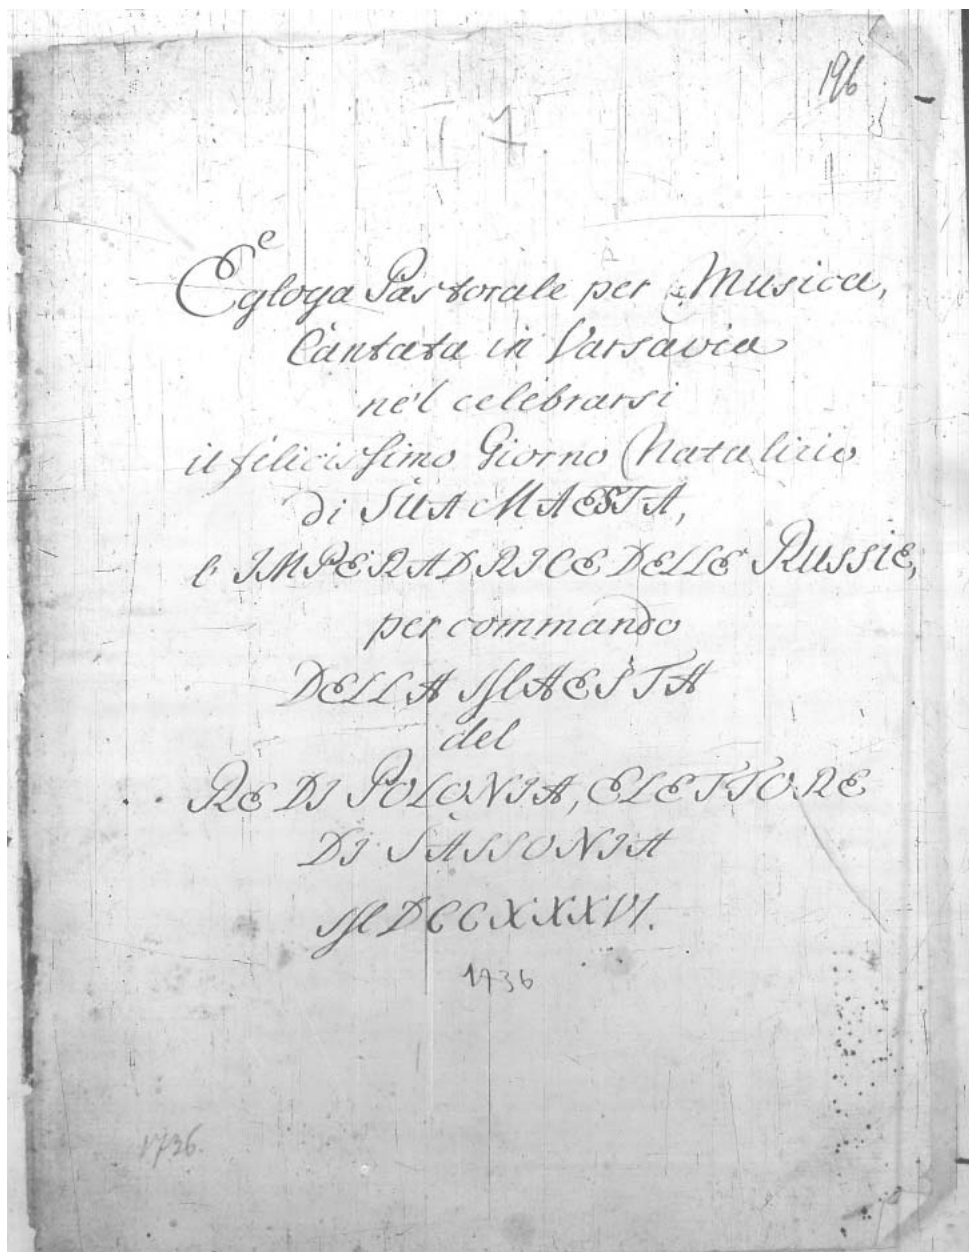 196
17
Egloga Pastorale per Musica,
Cantata in Varsavia
nel celebrarsi
il felicissimo Giorno Natalizio
di SUA MAESTA,
l'IMPERADRICE DELLE RUSSIE,
per commando
DELLA MAESTA
del
RE DI POLONIA, ELETTORE
DI SASSONIA
MDCCXXXVI.
1736
1736.